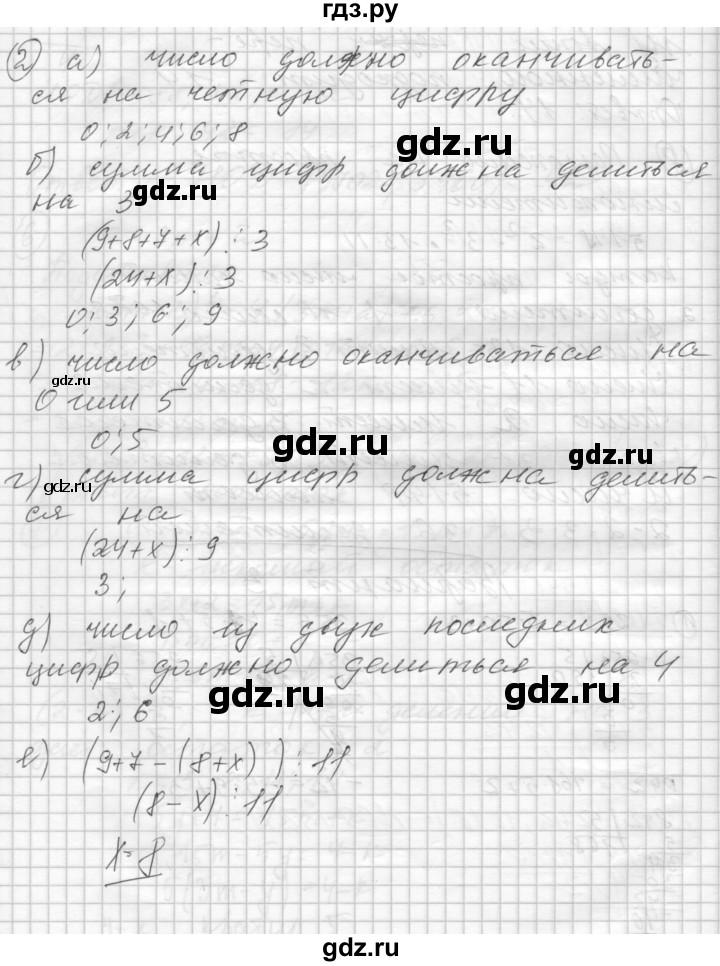 гдз.ру
2 а) число должно оканчивать-
ся на четную цифру
0; 2; 4; 6; 8
gdz.ru
б) сумма цифр должна делиться
на 3
gdz.ru
(9+8+7+x)⋮3
(24+x)⋮3
0; 3; 6; 9
в) число должно оканчиваться на
0 или 5
gdz.ru
0; 5
gdz.ru
gdz.ru
г) сумма цифр должна делить-
ся на
gdz.ru
(24+x)⋮9
3;
д) число из двух последних
цифр должно делиться на 4
2; 6
gdz.ru
gdz.ru
е) (9+7-(8+x))⋮11
(8-x)⋮11
x=8
gdz.ru
gdz.ru